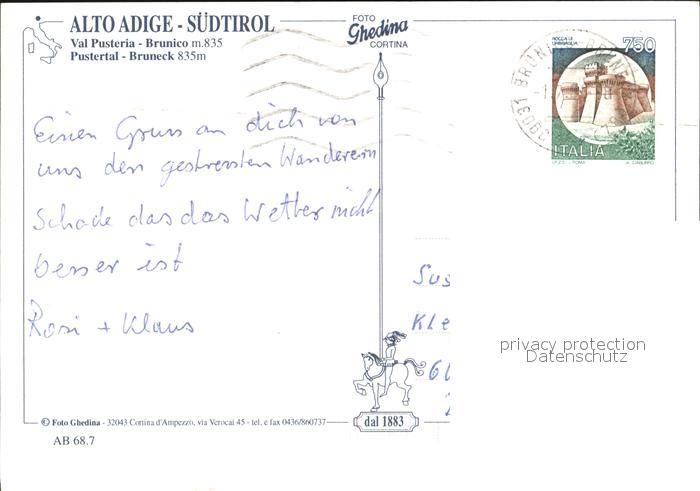 ALTO ADIGE - SÜDTIROL
Val Pusteria - Brunico m.835
Pustertal - Bruneck 835m
FOTO
Ghedina
CORTINA
ROCCA DI
URBISAGLIA
750
ITALIA
I.P.Z.S. - ROMA
Einen Gruss an dich von
uns den gestressten Wanderern
Schade das das Wetter nicht
besser ist
Rosi + Klaus
Sus
Kle
privacy protection
Datenschutz
dal 1883
© Foto Ghedina - 32043 Cortina d'Ampezzo, via Verocai 45 - tel. e fax 0436/860737
AB 68.7